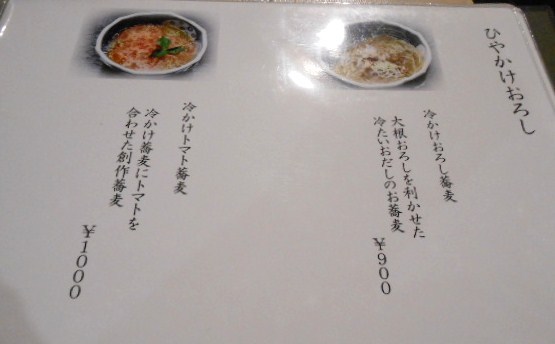 ひやかけおろし
冷かけおろし蕎麦
大根おろしを利かせた
冷たいおだしのお蕎麦
¥900
冷かけトマト蕎麦
冷かけ蕎麦にトマトを
合わせた創作蕎麦
¥1000